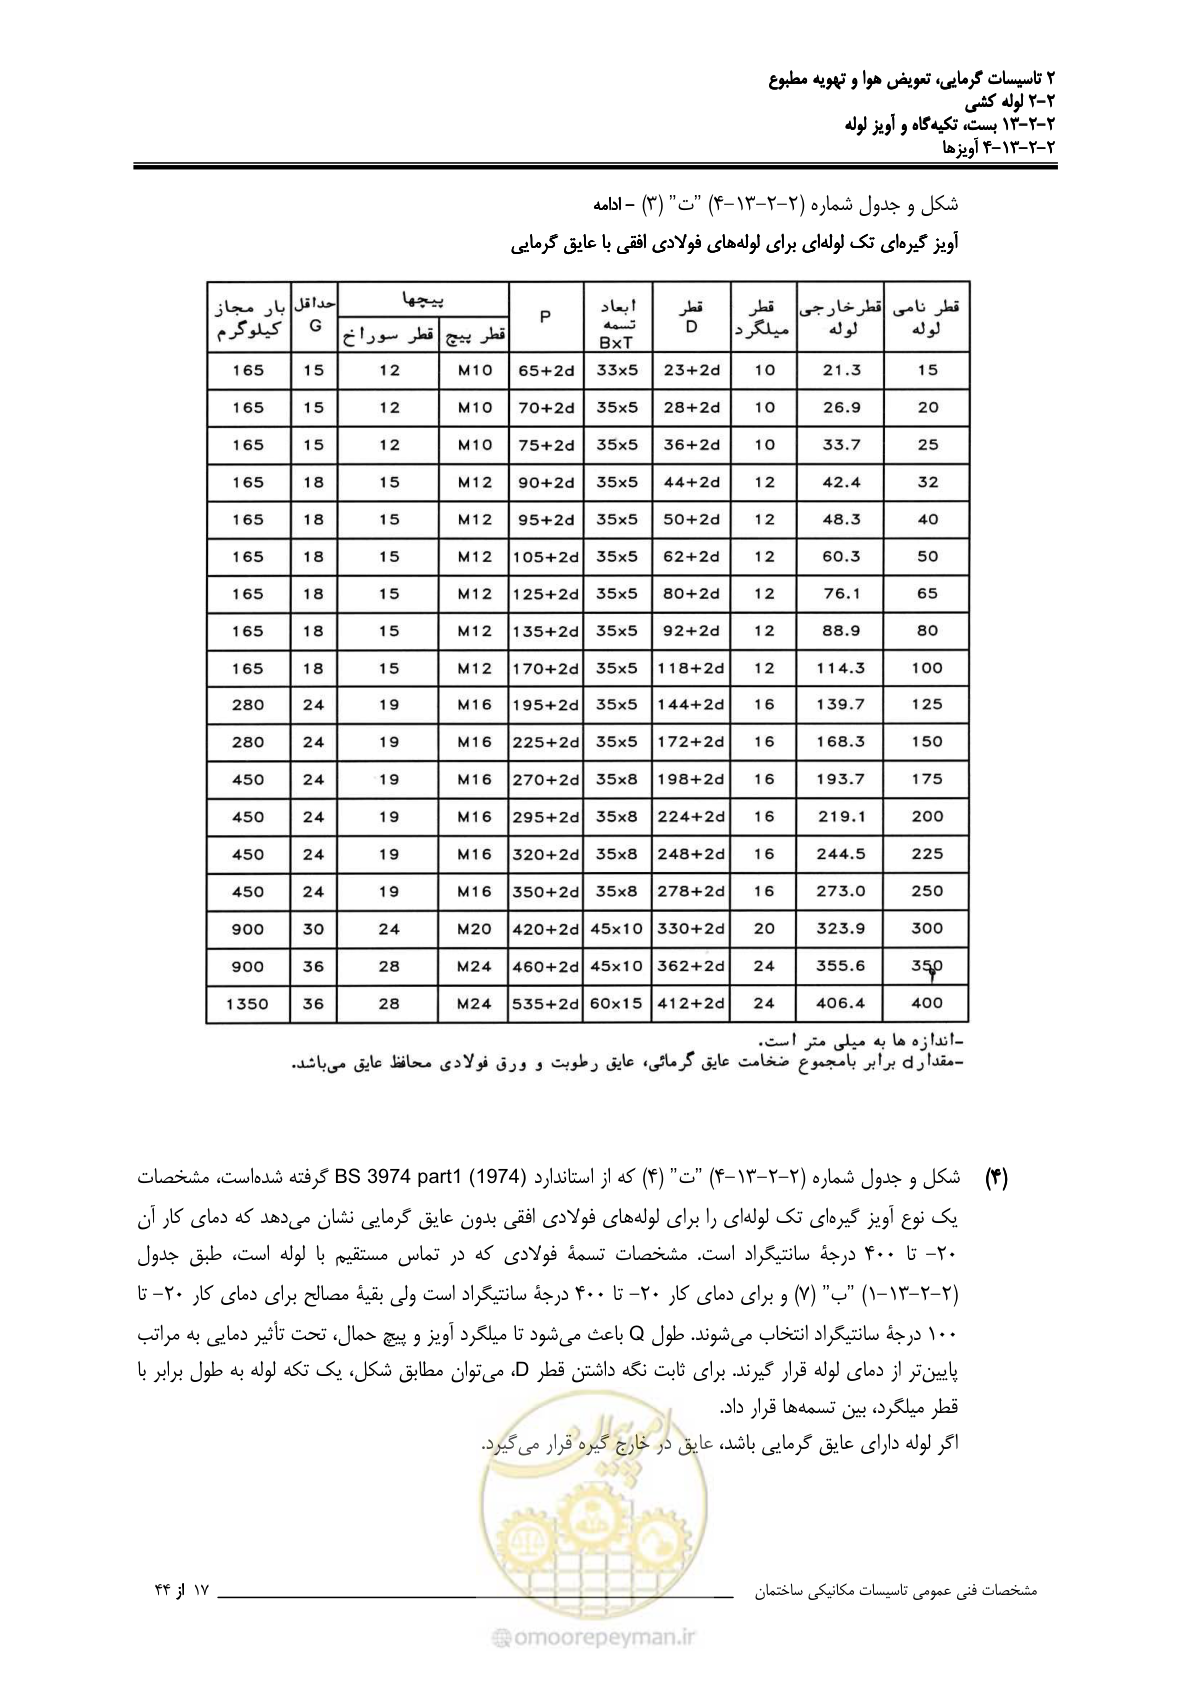 ۲ تاسیسات گرمایی، تعویض هوا و تهویه مطبوع
۲-۲ لوله کشی
۲-۲-۱۳ بست، تکیه‌گاه و آویز لوله
۲-۲-۱۳-۴ آویزها
شکل و جدول شماره (۲-۲-۱۳-۴) "ت" (۳) - ادامه
آویز گیره‌ای تک لوله‌ای برای لوله‌های فولادی افقی با عایق گرمایی
قطر نامی لوله | قطر خارجی لوله | قطر میلگرد | قطر D | ابعاد تسمه BxT | P | پیچها: قطر پیچ | قطر سوراخ | حداقل G | بار مجاز کیلوگرم
15 | 21.3 | 10 | 23+2d | 33x5 | 65+2d | M10 | 12 | 15 | 165
20 | 26.9 | 10 | 28+2d | 35x5 | 70+2d | M10 | 12 | 15 | 165
25 | 33.7 | 10 | 36+2d | 35x5 | 75+2d | M10 | 12 | 15 | 165
32 | 42.4 | 12 | 44+2d | 35x5 | 90+2d | M12 | 15 | 18 | 165
40 | 48.3 | 12 | 50+2d | 35x5 | 95+2d | M12 | 15 | 18 | 165
50 | 60.3 | 12 | 62+2d | 35x5 | 105+2d | M12 | 15 | 18 | 165
65 | 76.1 | 12 | 80+2d | 35x5 | 125+2d | M12 | 15 | 18 | 165
80 | 88.9 | 12 | 92+2d | 35x5 | 135+2d | M12 | 15 | 18 | 165
100 | 114.3 | 12 | 118+2d | 35x5 | 170+2d | M12 | 15 | 18 | 165
125 | 139.7 | 16 | 144+2d | 35x5 | 195+2d | M16 | 19 | 24 | 280
150 | 168.3 | 16 | 172+2d | 35x5 | 225+2d | M16 | 19 | 24 | 280
175 | 193.7 | 16 | 198+2d | 35x8 | 270+2d | M16 | 19 | 24 | 450
200 | 219.1 | 16 | 224+2d | 35x8 | 295+2d | M16 | 19 | 24 | 450
225 | 244.5 | 16 | 248+2d | 35x8 | 320+2d | M16 | 19 | 24 | 450
250 | 273.0 | 16 | 278+2d | 35x8 | 350+2d | M16 | 19 | 24 | 450
300 | 323.9 | 20 | 330+2d | 45x10 | 420+2d | M20 | 24 | 30 | 900
350 | 355.6 | 24 | 362+2d | 45x10 | 460+2d | M24 | 28 | 36 | 900
400 | 406.4 | 24 | 412+2d | 60x15 | 535+2d | M24 | 28 | 36 | 1350
-اندازه ها به میلی متر است.
-مقدار d برابر بامجموع ضخامت عایق گرمائی، عایق رطوبت و ورق فولادی محافظ عایق می‌باشد.
(۴) شکل و جدول شماره (۲-۲-۱۳-۴) "ت" (۴) که از استاندارد BS 3974 part1 (1974) گرفته شده‌است، مشخصات
یک نوع آویز گیره‌ای تک لوله‌ای را برای لوله‌های فولادی افقی بدون عایق گرمایی نشان می‌دهد که دمای کار آن
۲۰- تا ۴۰۰ درجهٔ سانتیگراد است. مشخصات تسمهٔ فولادی که در تماس مستقیم با لوله است، طبق جدول
(۲-۲-۱۳-۱) "ب" (۷) و برای دمای کار ۲۰- تا ۴۰۰ درجهٔ سانتیگراد است ولی بقیهٔ مصالح برای دمای کار ۲۰- تا
۱۰۰ درجهٔ سانتیگراد انتخاب می‌شوند. طول Q باعث می‌شود تا میلگرد آویز و پیچ حمال، تحت تأثیر دمایی به مراتب
پایین‌تر از دمای لوله قرار گیرند. برای ثابت نگه داشتن قطر D، می‌توان مطابق شکل، یک تکه لوله به طول برابر با
قطر میلگرد، بین تسمه‌ها قرار داد.
اگر لوله دارای عایق گرمایی باشد، عایق در خارج گیره قرار می‌گیرد.
امور پیمان
مشخصات فنی عمومی تاسیسات مکانیکی ساختمان ۱۷ از ۴۴
@omoorepeyman.ir